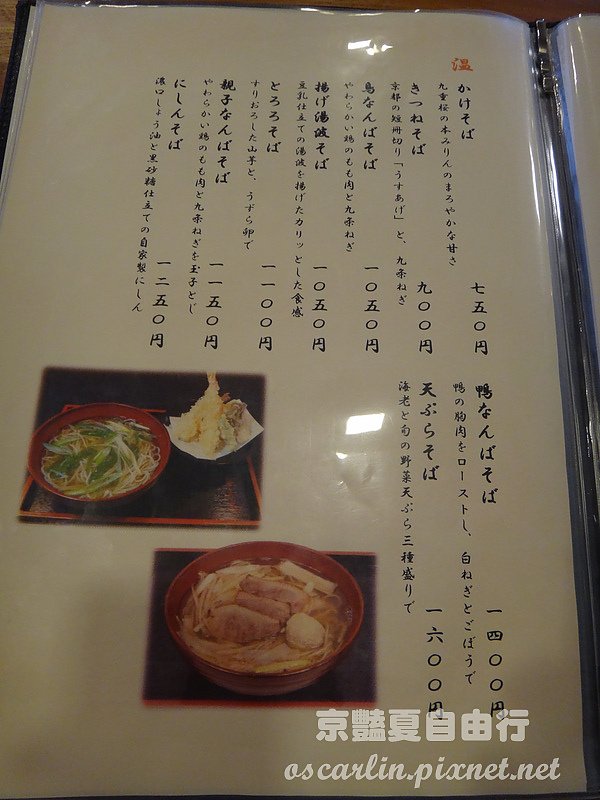 温
かけそば
九重桜の本みりんのまろやかな甘さ
七五〇円
きつねそば
京都の短冊切り「うすあげ」と、九条ねぎ
九〇〇円
鳥なんばそば
やわらかい鶏のもも肉と九条ねぎ
一〇五〇円
揚げ湯波そば
豆乳仕立ての湯波を揚げたカリッとした食感
一〇五〇円
とろろそば
すりおろした山芋と、うずら卵で
一一〇〇円
親子なんばそば
やわらかい鶏のもも肉と九条ねぎを玉子とじ
一一五〇円
にしんそば
濃口しょう油と黒砂糖仕立ての自家製にしん
一二五〇円
鴨なんばそば
鴨の胸肉をローストし、白ねぎとごぼうで
一四〇〇円
天ぷらそば
海老と旬の野菜天ぷら三種盛りで
一六〇〇円
京豔夏自由行
oscarlin.pixnet.net